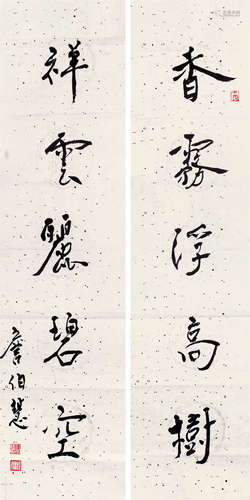 香霧浮高樹
祥雲麗碧空
詹伯慧